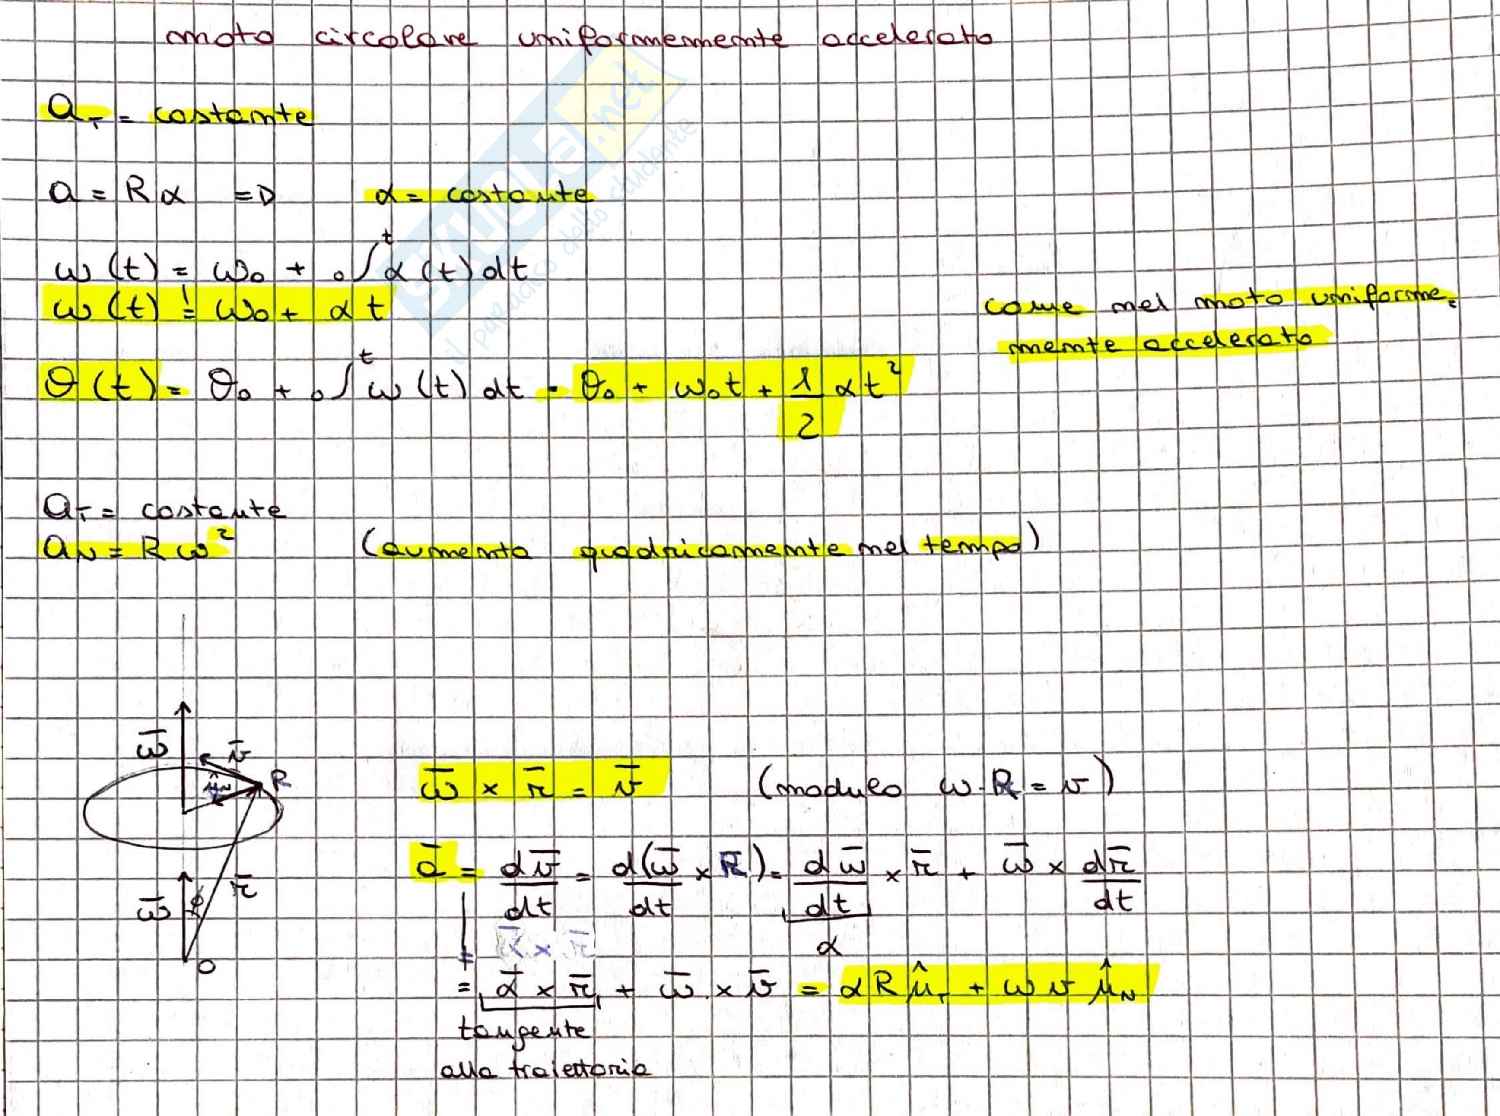 moto circolare uniformemente accelerato
a_T = costante
a = R α => α = costante
ω(t) = ω₀ + ₀∫ᵗ α(t) dt
ω(t) = ω₀ + αt
come nel moto uniforme-
mente accelerato
θ(t) = θ₀ + ₀∫ᵗ ω(t) dt = θ₀ + ω₀t + 1/2 αt²
a_T = costante
a_N = Rω² (aumenta quadricamente nel tempo)
ω̄ v̄ R
û_N
ω̄ × r̄ = v̄ (modulo ω·R = v)
ω̄ φ r̄
O
ā = dv̄/dt = d(ω̄ × r̄)/dt = dω̄/dt × r̄ + ω̄ × dr̄/dt
ᾱ × r̄ α
= ᾱ × r̄ + ω̄ × v̄ = αRû_T + ωvû_N
tangente
alla traiettoria
SKUOLA.net
il paradiso dello studente